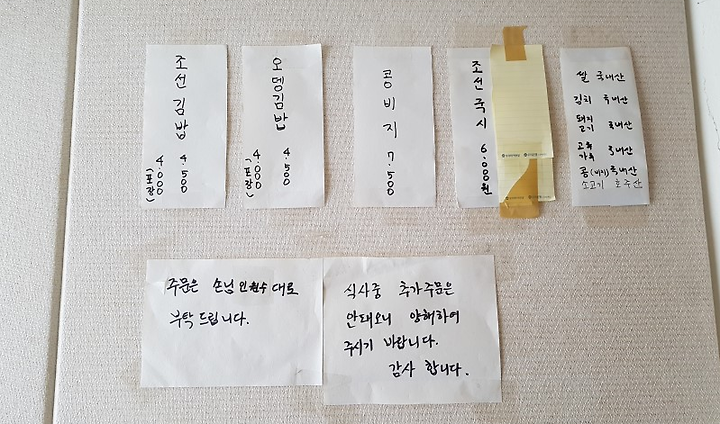 조선김밥
4.500
4.000
(포장)
오뎅김밥
4.500
4.000
(포장)
콩비지 7.500
조선국시 6.000원
쌀 국내산
김치 국내산
돼지
고기 국내산
고추
가루 국내산
콩(비지)국내산
소고기 호주산
주문은 손님 인원수 대로
부탁드립니다.
식사중 추가주문은
안돼오니 양해하여
주시기 바랍니다.
감사 합니다.